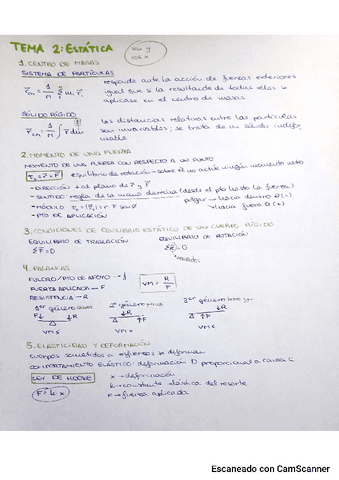 TEMA 2: ESTÁTICA
1. CENTRO DE MASAS
SISTEMA DE PARTÍCULAS
responde ante la acción de fuerzas exteriores
igual que si la resultante de todas ellas se
aplicase en el centro de masas
SÓLIDO RÍGIDO
las distancias relativas entre las partículas
son invariables; se trata de un sólido indefor
mable
2. MOMENTO DE UNA FUERZA
MOMENTO DE UNA FUERZA CON RESPECTO A UN PUNTO
equilibrio de rotación → sobre él no actúe ningún momento neto
- DIRECCIÓN: ⊥ al plano de r⃗ y F⃗
- SENTIDO: regla de la mano derecha (desde el pto hasta la fuerza)
pulgar → hacia dentro
hacia fuera
- MÓDULO
- PTO DE APLICACIÓN
3. CONDICIONES DE EQUILIBRIO ESTÁTICO DE UN CUERPO RÍGIDO
EQUILIBRIO DE TRASLACIÓN EQUILIBRIO DE ROTACIÓN
ΣF=0
4. PALANCAS
FULCRO/PTO DE APOYO →
FUERZA APLICADA → F
RESISTENCIA → R
VM = R/F
1er género 2º género 3er género
5. ELASTICIDAD Y DEFORMACIÓN
cuerpos sometidos a esfuerzos se deforman
COMPORTAMIENTO ELÁSTICO: deformación D proporcional a causa C
LEY DE HOOKE x → deformación
k → constante elástica del resorte
F = k·x F → fuerza aplicada
Escaneado con CamScanner